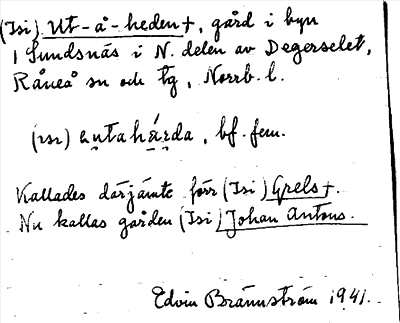 (Isi) Ut-å-heden+, gård i byn
1 Sundsnäs i N. delen av Degerselet,
Råneå sn och tg, Norrb. l.
(ɪsɪ) ɛ̣ṇtahá̤rda, bf. fem.
Kallades därjämte förr (Isi) Grels+.
Nu kallas gården (Isi) Johan Antons.
Edvin Brännström 1941.